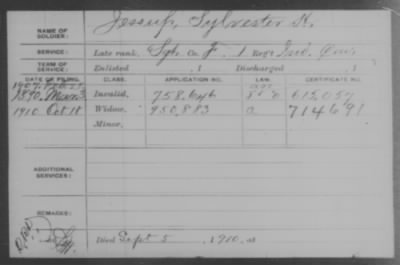 NAME OF SOLDIER: Jessup, Sylvester H.
SERVICE: Late rank, Sgt. Co. F, 1 Reg't Ind. Cav.
TERM OF SERVICE: Enlisted , 1 Discharged , 1
DATE OF FILING. CLASS. APPLICATION NO. LAW. CERTIFICATE NO.
1907
1890, Mar. Invalid, 758.646 612,057
1910 Oct 18 Widow, 950,883 a 714691
Minor,
ADDITIONAL SERVICES:
REMARKS:
Died Sept 5, 1910, at